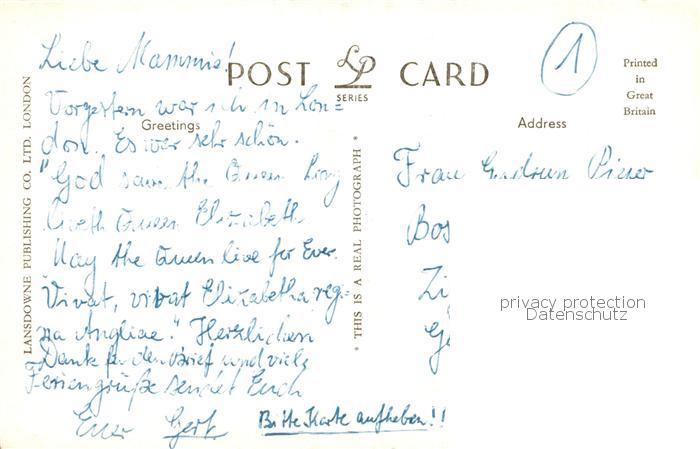 Liebe Mammis!
POST LP CARD
SERIES
1
Printed
in
Great
Britain
Vorgestern war ich in Lon=
Greetings
don. Es war sehr schön.
Address
"God save the Queen Long
liveth Queen Elizabeth
May the Queen live for Ever.
Vivat, vivat Elizabetha regi=
na Angliae." Herzlichen
Dank für den Brief und viele
Feriengrüße sendet Euch
Euer Gert
Bitte Karte aufheben!!
LANSDOWNE PUBLISHING CO. LTD. LONDON
* THIS IS A REAL PHOTOGRAPH *
Frau Gudrun
Bos
Zi
privacy protection
Datenschutz